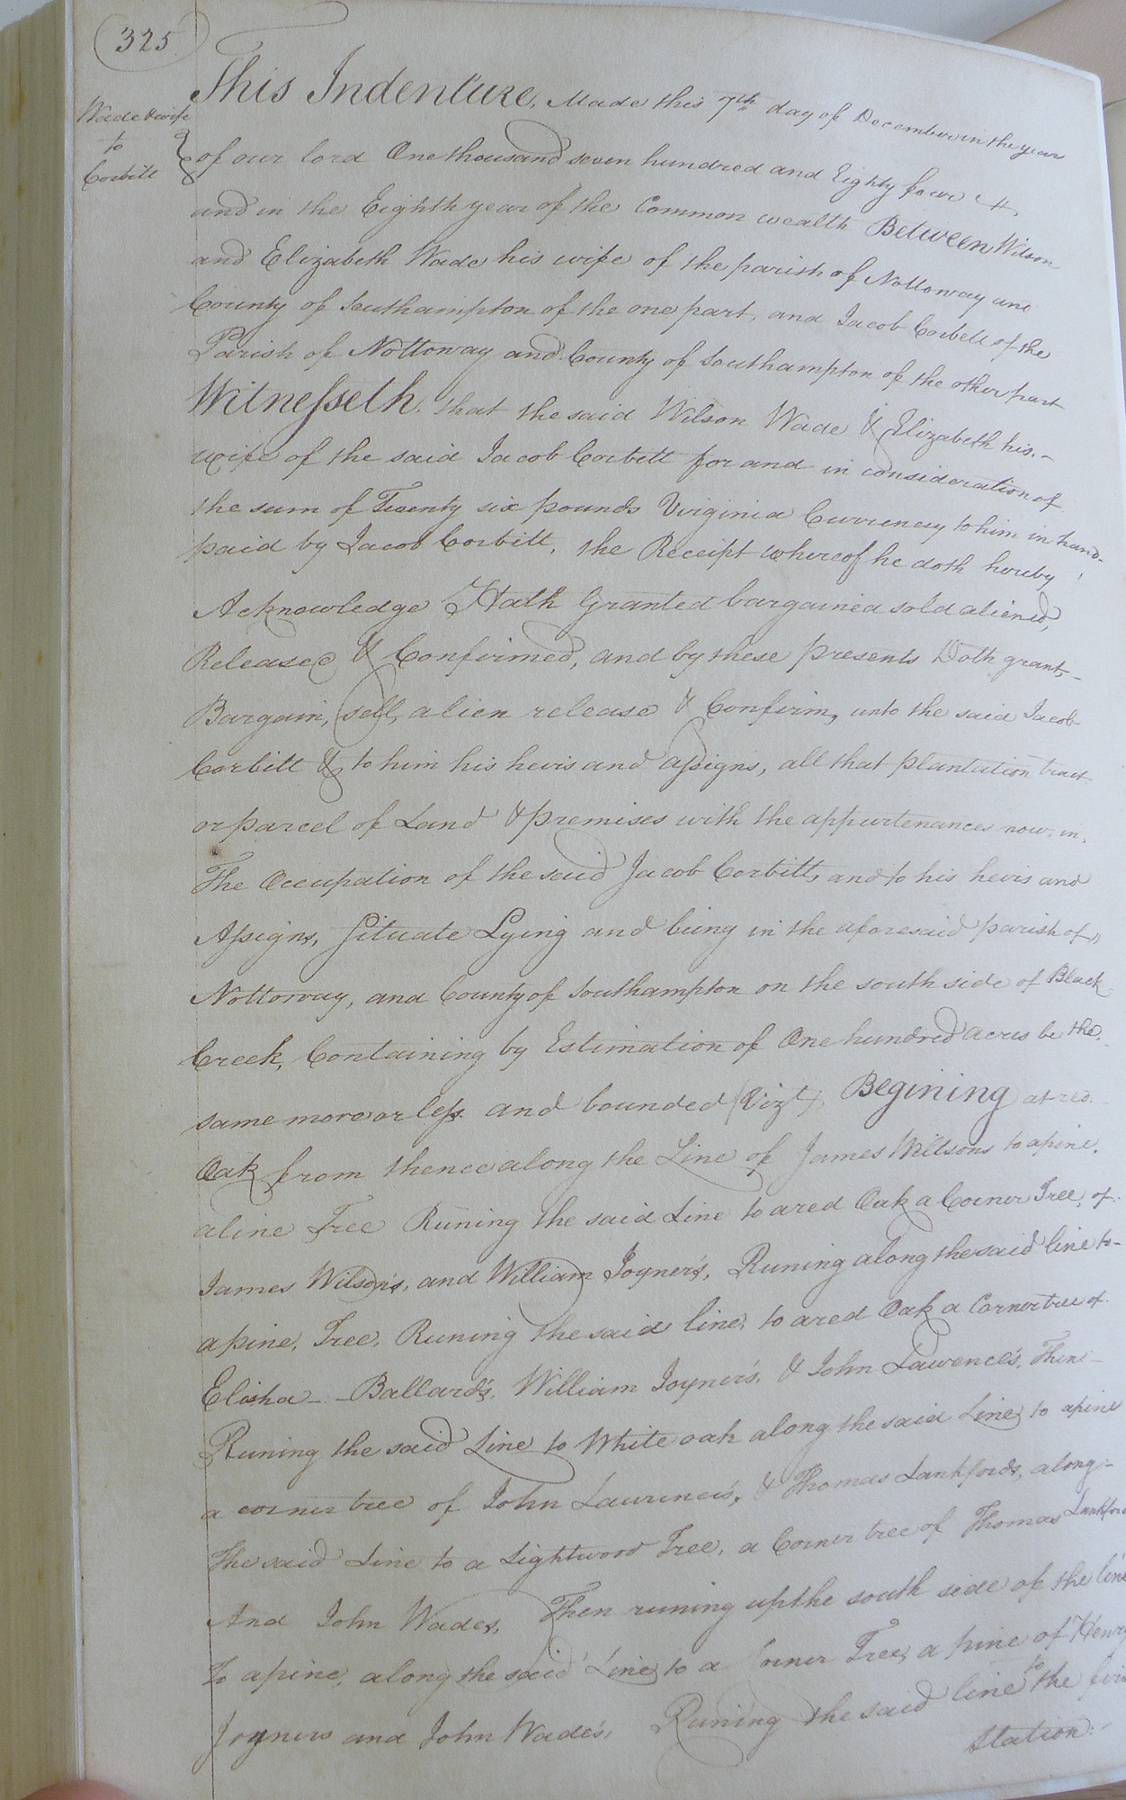 325
Wade & wife
to
Corbitt
This Indenture, Made this 7th day of December in the year
of our lord One thousand seven hundred and Eighty four &
and in the Eighth year of the Common wealth Between Wilson
and Elizabeth Wade his wife of the parish of Nottoway and
County of Southampton of the one part, and Jacob Corbett of the
Parish of Nottoway and County of Southampton of the other part
Witnesseth. that the said Wilson Wade & Elizabeth his.-
wife of the said Jacob Corbett for and in consideration of
the sum of Twenty six pounds Virginia Currency to him in hand-
paid by Jacob Corbitt, the Receipt whereof he doth hereby
Acknowledge Hath Granted bargained sold aliened,
Released & Confirmed, and by these presents Doth grant,-
Bargain, sell, alien release & Confirm, unto the said Jacob
Corbitt & to him his heirs and assigns, all that plantation tract
or parcel of Land & premises with the appurtenances now in.
The Occupation of the said Jacob Corbitt, and to his heirs and
Assigns, Situate Lying and being in the aforesaid parish of,,
Nottoway, and County of Southampton on the south side of Black
Creek, Containing by Estimation of One hundred acres be the.
same more or less. and bounded (Vizt) Begining at red.
Oak from thence along the Line of James Willsons to a pine,
a line Tree Runing the said Line to a red Oak a Corner Tree, of.
James Wilson's, and William Joyner's, Runing along the said line to-
a pine, Tree, Runing the said line, to a red Oak a Corner tree of.
Elisha - Ballard's, William Joyner's, & John Lawrence's, Then-
Runing the said Line to White oak along the said Line, to a pine
a corner tree of John Laurence's, & Thomas Lankfords, along-
The said Line to a Lightwood Tree, a Corner tree of Thomas Lankford
And John Wades, Then runing up the south side of the line
to a pine, along the said Line, to a Corner Tree, a pine of Henry
Joyners and John Wade's, Runing the said line to the first
Station.